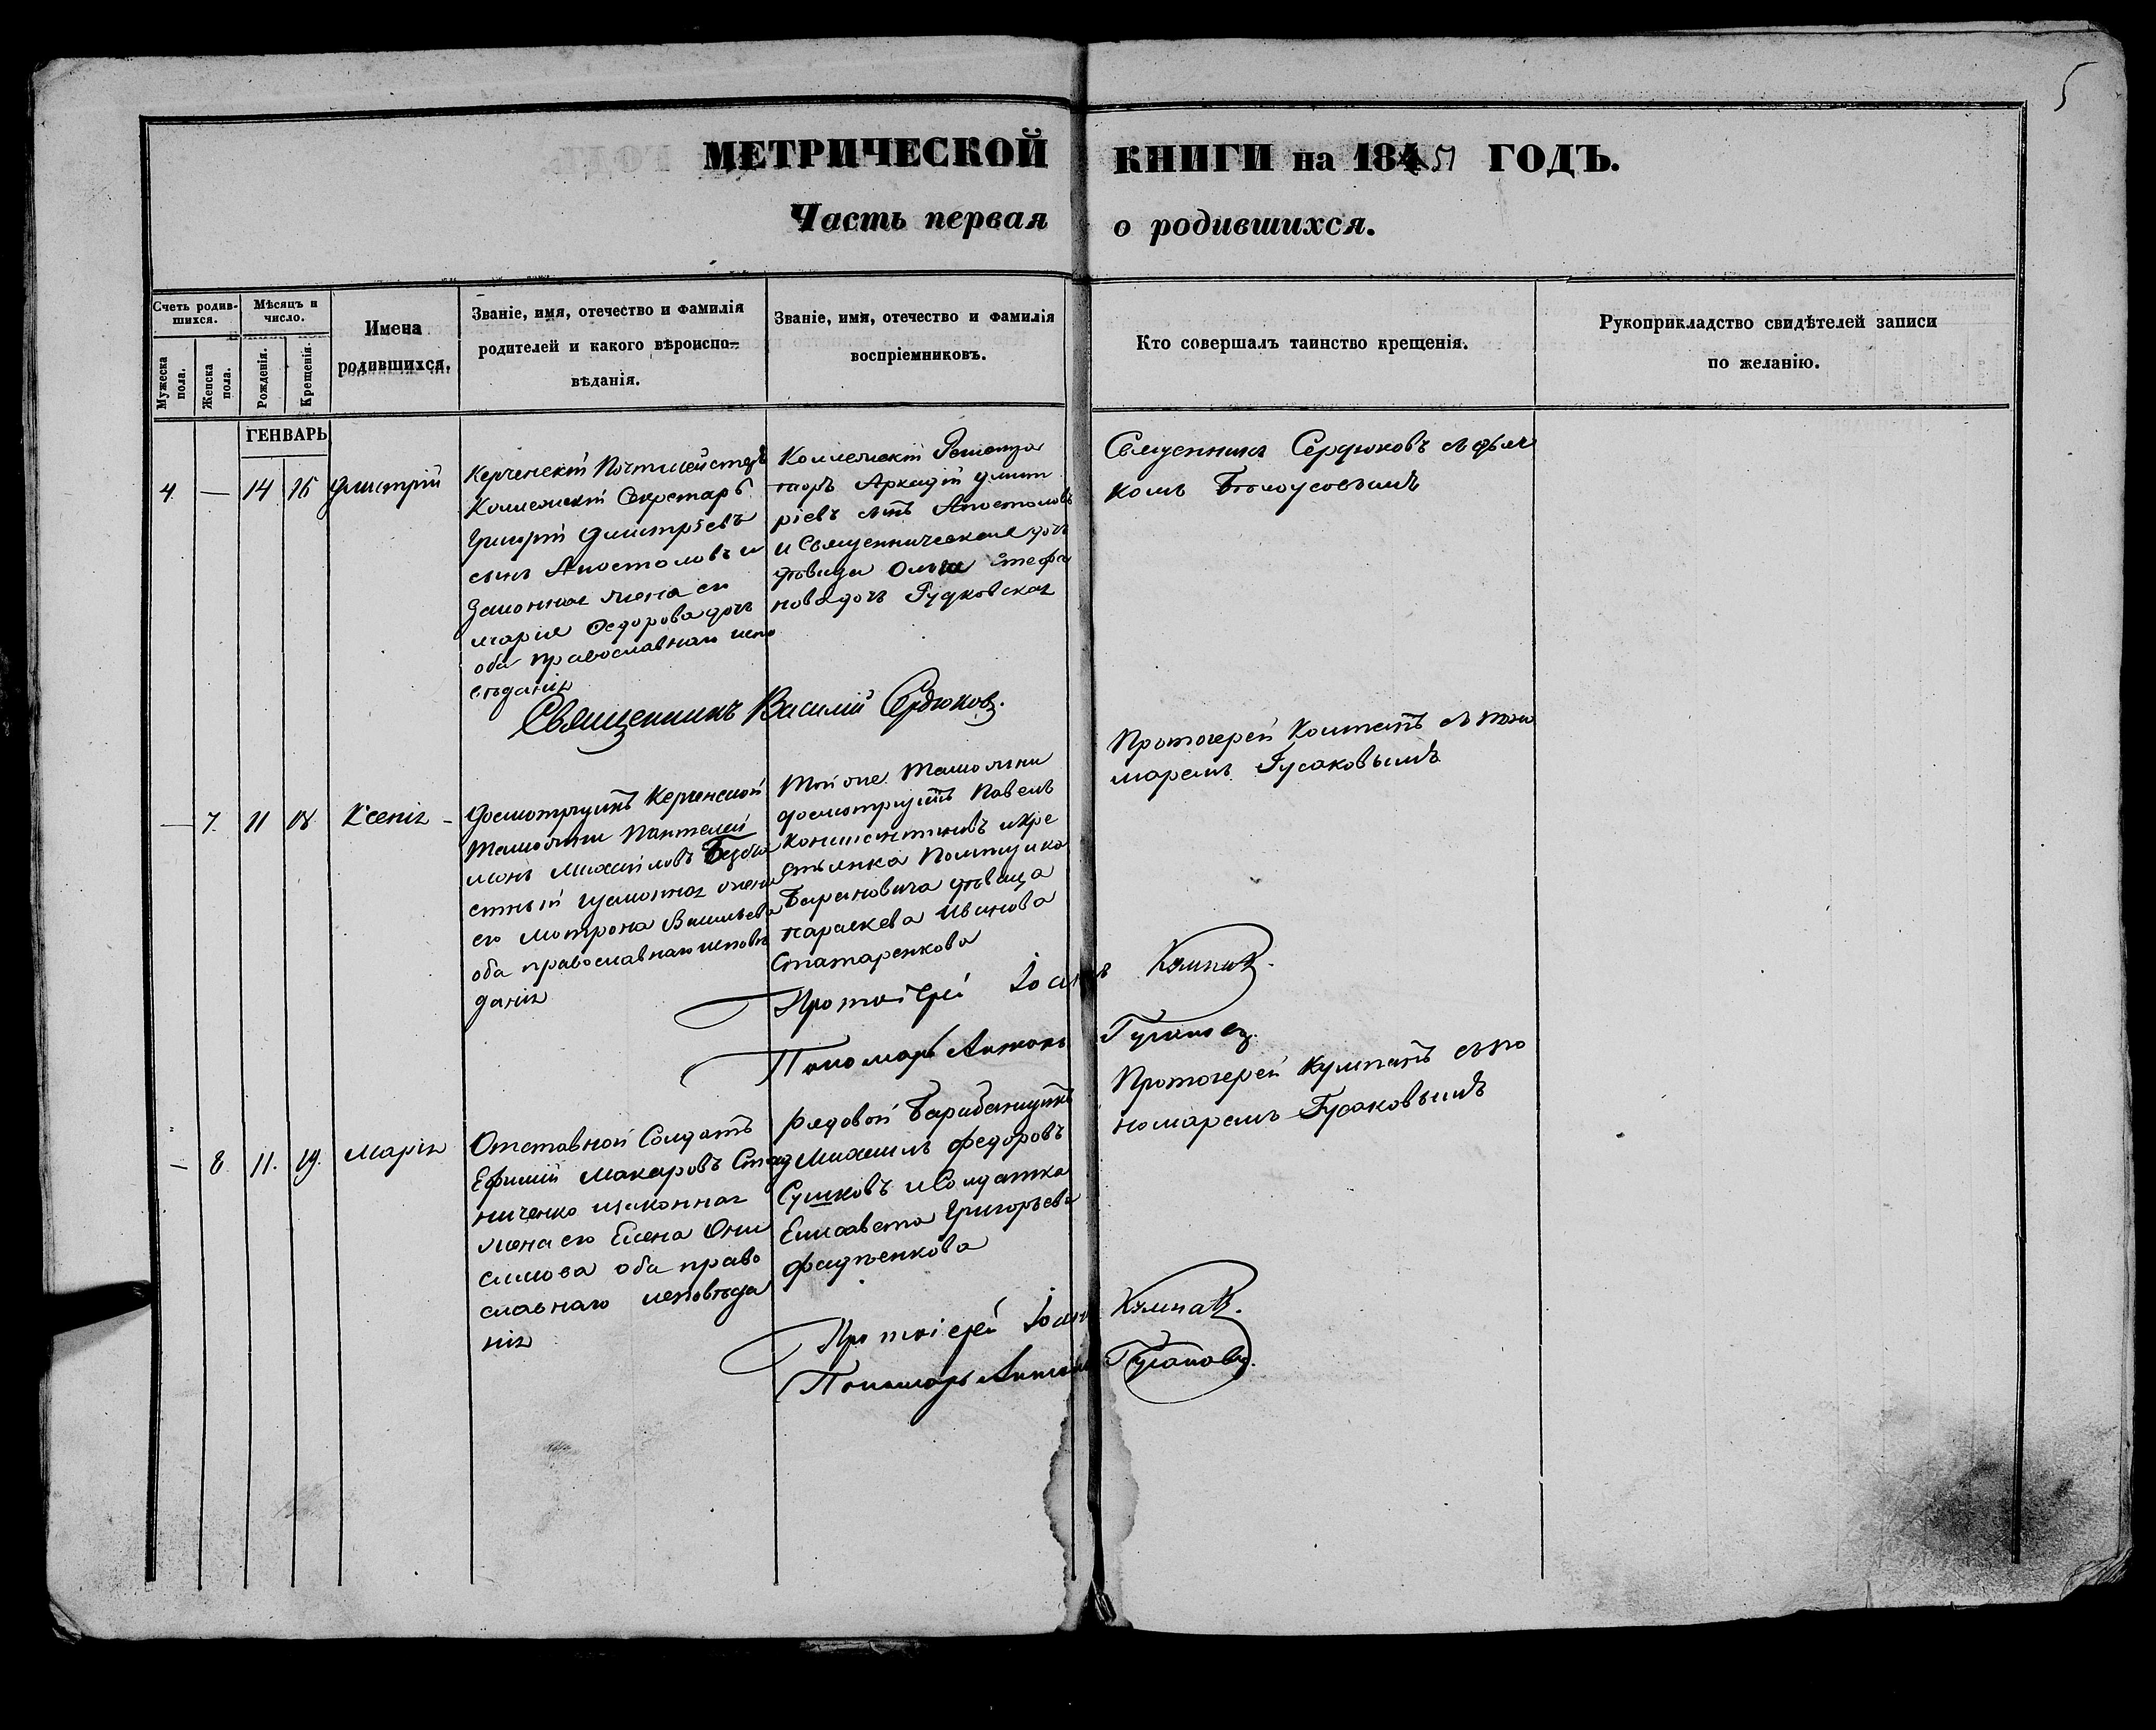 5
МЕТРИЧЕСКОЙ КНИГИ на 184 51 ГОДЪ.
Часть первая о родившихся.
Счетъ родив-
шихся.
Мужеска пола.
Женска пола.
Мѣсяцъ и
число.
Рожденія.
Крещенія.
Имена
родившихся.
Званіе, имя, отечество и фамилія
родителей и какого вѣроиспо-
вѣданія.
Званіе, имя, отечество и фамилія
воспріемниковъ.
Кто совершалъ таинство крещенія.
Рукоприкладство свидѣтелей записи
по желанію.
ГЕНВАРЬ
4 — 14 15 Дмитрій
Керченскій Почтмейстеръ
Коллежскій Секретарь
Григорій Дмитріевъ
сынъ Апостоловъ и
законная жена его
Марія Федорова дочь
оба православнаго испо
вѣданія
Коллежскій Регистра
торъ Аркадій Дмит
ріевъ сынъ Апостоловъ
и Священническая дочь
дѣвица Ольга Стефа
нова дочь Гудковская
Священникъ Сердюковъ съ дьяч
комъ Бѣлоусовымъ
Священникъ Василій Сердюковъ.
— 7. 11 18 Ксенія
Досмотрщикъ Керченской
Таможни Пантелей
монъ Михайловъ Безбо
его Мотрона Васильева
оба православнаго исповѣ
данія
Той же Таможни
досмотрщикъ Павелъ
Константиновъ и кре
стьянка Помѣщика
Барановича дѣвица
Параскева Иванова
Стотаренкова
Протоіерей съ поно
маремъ Гусаковымъ
Протоіерей Іоаннъ Кумпанъ.
Пономарь Антонъ Гусаковъ.
— 8. 11. 19. Марія
Отставной Солдатъ
Ефимій Макаровъ
ниченко и законная
жена его Елена Они
симова оба право
славнаго исповѣда
нія
Рядовой Барабанщикъ
Михаилъ Федоровъ
Сушковъ и Солдатка
Елисавета Григорьева
Фадѣенкова
Протоіерей Кумпанъ съ по
номаремъ Гусаковымъ
Протоіерей Іоаннъ Кумпанъ.
Пономарь Антонъ Гусаковъ.